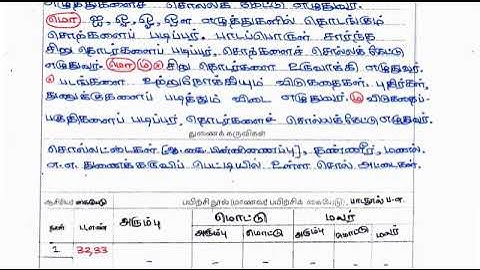 எழுத்துகளைப் படிப்பர். சொல்லக் கேட்டு எழுதுவர்.
மொ ஐ, ஒ, ஓ, ஔ எழுத்துகளில் தொடங்கும்
சொற்களைப் படிப்பர். பாடப்பொருள் சார்ந்த
சிறு தொடர்களைப் படிப்பர், சொற்களைச் சொல்லக்கேட்டு
எழுதுவர். மொ ம சிறு தொடர்களை உருவாக்கி எழுதுவர்.
படங்களை உற்றுநோக்கியும் விடுகதைகள். புதிர்கள்,
துணுக்குகளைப் படித்தும் விடை எழுதுவர். ம விடுகதைப்-
பகுதிகளைப் படிப்பர், தொடர்களைச் சொல்லக்கேட்டு எழுதுவர்.
துணைக் கருவிகள்
சொல்லட்டைகள் தண்ணீர், மணல்
உ.ள. துணைக்கருவிப் பெட்டியில் உள்ள சொல் அட்டைகள்.
ஆசிரியர் கையேடு பயிற்சி நூல் (மாணவர் பயிற்சிக் கையேடு), பாடநூல் ப-எ.
நாள் ப.எண் அரும்பு மொட்டு மலர்
அரும்பு மொட்டு அரும்பு மொட்டு மலர்
1 32,33 - - - - - -